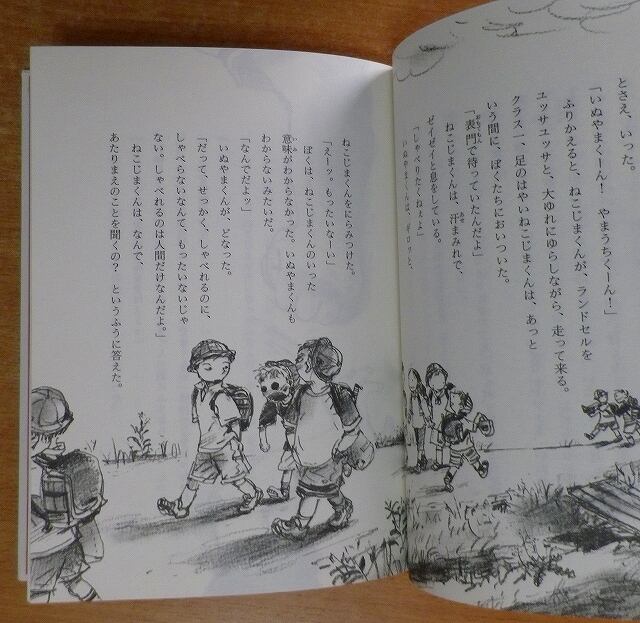 とさえ、いった。
「いぬやまくーん！　やまうちくーん！」
ふりかえると、ねこじまくんが、ランドセルを
ユッサユッサと、大ゆれにゆらしながら、走って来る。
クラス一、足のはやいねこじまくんは、あっと
いう間に、ぼくたちにおいついた。
「表門で待っていたんだよ」
ねこじまくんは、汗まみれで、
ゼイゼイと息をしている。
「しゃべりたくねぇよ」
いぬやまくんは、ギロッと、
ねこじまくんをにらみつけた。
「えーッ。もったいなーい」
ぼくは、ねこじまくんのいった
意味がわからなかった。いぬやまくんも
わからないみたいだ。
「なんでだよッ」
いぬやまくんが、どなった。
「だって、せっかく、しゃべれるのに、
しゃべらないなんて、もったいないじゃ
ない。しゃべれるのは人間だけなんだよ。」
ねこじまくんは、なんで、
あたりまえのことを聞くの？　というふうに答えた。